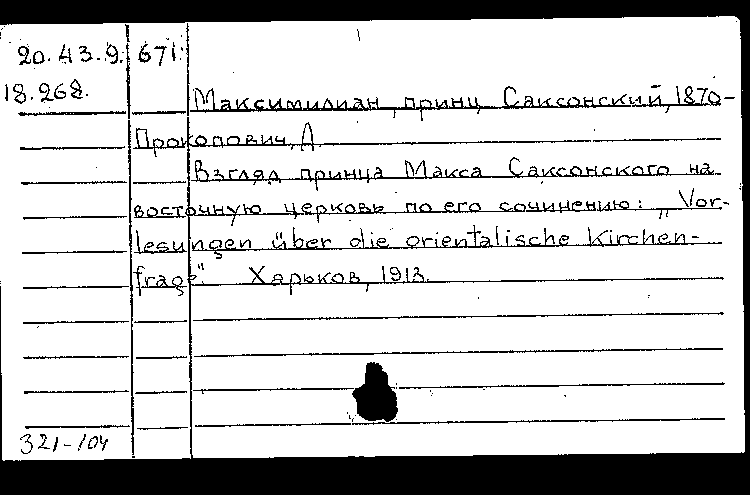 20.43.9. 671.
18.268.
Максимилиан, принц Саксонский, 1870-
Прокопович, А
Взгляд принца Макса Саксонского на
восточную церковь по его сочинению: „Vor-
lesungen über die orientalische Kirchen-
frage". Харьков, 1913.
321-104